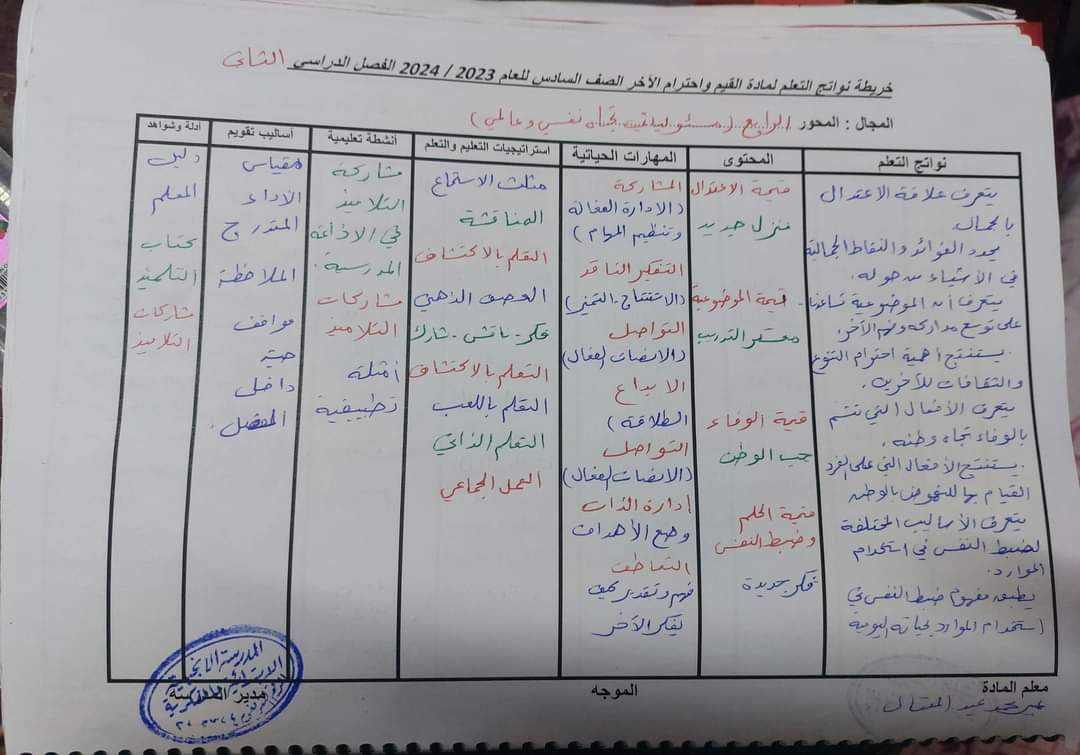 خريطة نواتج التعلم لمادة القيم واحترام الآخر الصف السادس للعام 2023 / 2024 الفصل الدراسي الثاني
المجال : المحور الرابع (مسئولياتي تجاه نفسي وعالمي)
نواتج التعلم
يتعرف علاقة الاعتدال
بالجمال.
يحدد الفوائد والنقاط الجمالية
في الأشياء من حوله.
يتعرف أن الموضوعية تساعدنا
على توسع مداركه وفهم الآخر.
يستنتج أهمية احترام التنوع
والثقافات للآخرين.
يتعرف الأفعال التي تتسم
بالوفاء تجاه وطنه.
يستنتج الأفعال التي على الفرد
القيام بها للنهوض بالوطن
يتعرف الأساليب المختلفة
لضبط النفس في استخدام
الموارد.
يطبق مفهوم ضبط النفس في
استخدام الموارد بحياته اليومية
المحتوى
قيمة الاعتدال
منزل جديد
قيمة الموضوعية
معسكر التدريب
قيمة الوفاء
حب الوطن
قيمة الحلم
وضبط النفس
فكر جديدة
المهارات الحياتية
المشاركة
(الادارة الفعالة
وتنظيم المهام)
التفكير الناقد
(الاستنتاج - التميز)
التواصل
(الانصات الفعال)
الابداع
الطلاقة)
التواصل
(الانصات الفعال)
إدارة الذات
وضع الأهداف
التعاطف
فهم وتقدير كيف
يفكر الآخر
استراتيجيات التعليم والتعلم
مثلث الاستماع
المناقشة
التعلم بالاكتشاف
العصف الذهني
فكر - ناقش - شارك
التعلم بالاكتشاف
التعلم باللعب
التعلم الذاتي
العمل الجماعي
أنشطة تعليمية
مشاركة
التلاميذ
في الاذاعة
المدرسية.
مشاركات
التلاميذ
أمثلة
تطبيقية
أساليب تقويم
مقياس
الأداء
المتدرج
الملاحظة
مواقف
حية
داخل
الفصل.
أدلة وشواهد
دليل
المعلم
كتاب
التلميذ
مشاركات
التلاميذ
معلم المادة
عبد المتعال
الموجه
مدير المدرسة
المدرسة